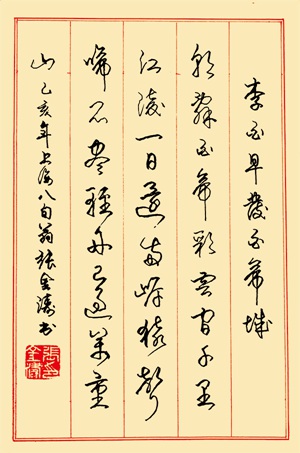 李白早發白帝城
朝辭白帝彩雲間千里
江陵一日還兩岸猿聲
啼不盡輕舟已過萬重
山 己亥年上海八旬翁張金濤書
張印金濤